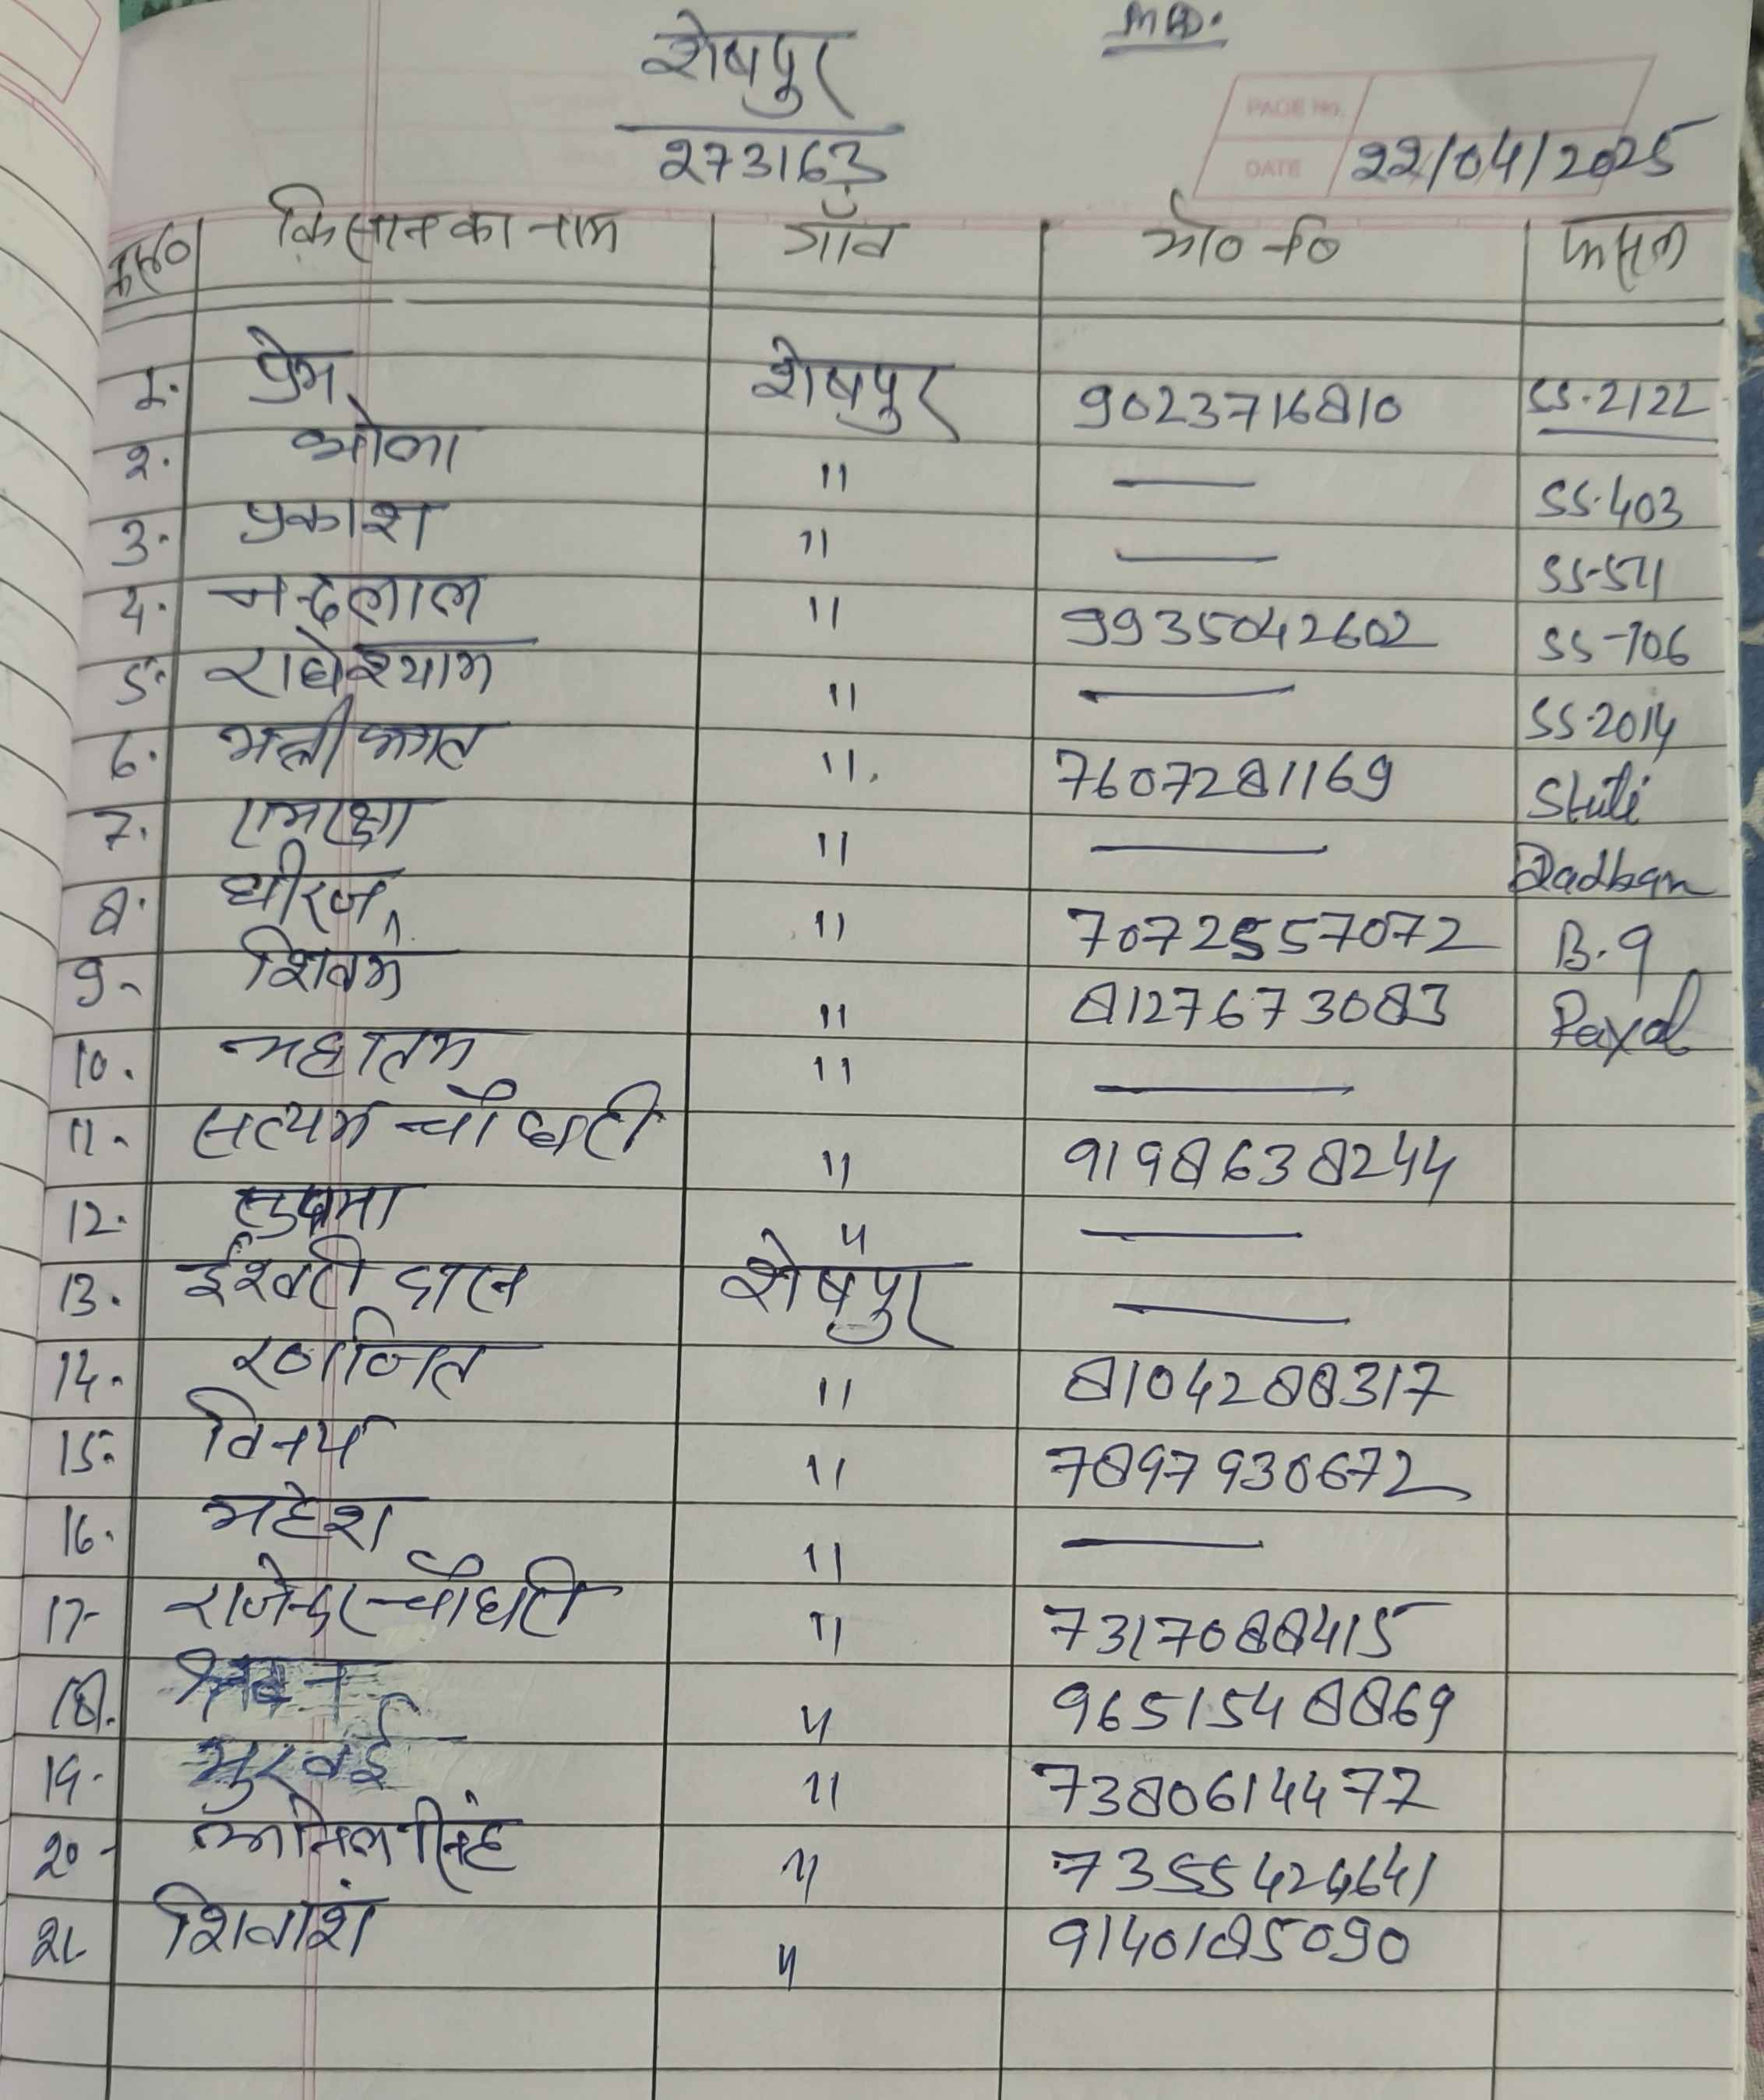 MD.
शेषपुर
273163
PAGE No.
DATE 22/04/2025
क्र०सं० किसान का नाम गाँव मो० नं० फसल
1. प्रेम शेषपुर 9023716810 SS-2122
2. भोला " — SS-403
3. प्रकाश " — SS-511
4. नन्दलाल " 9935042602 SS-706
5. राधेश्याम " — SS-2014
6. भगत " 7607281169 Stuti
7. " — Dadban
8. धीरज " 7072557072 B.9
9. शिवम " 8127673083 Payal
10. महातम " —
11. सत्यम चौधरी " 9198638244
12. " —
13. ईश्वरी शेषपुर —
14. रणजित " 8104288317
15. विनय " 7897930672
16. महेश " —
17. राजेन्द्र चौधरी " 7317088415
18. " 9651548869
19. " 7380614477
20. अनिल सिंह " 7355424641
21. शिवांश " 9140185090